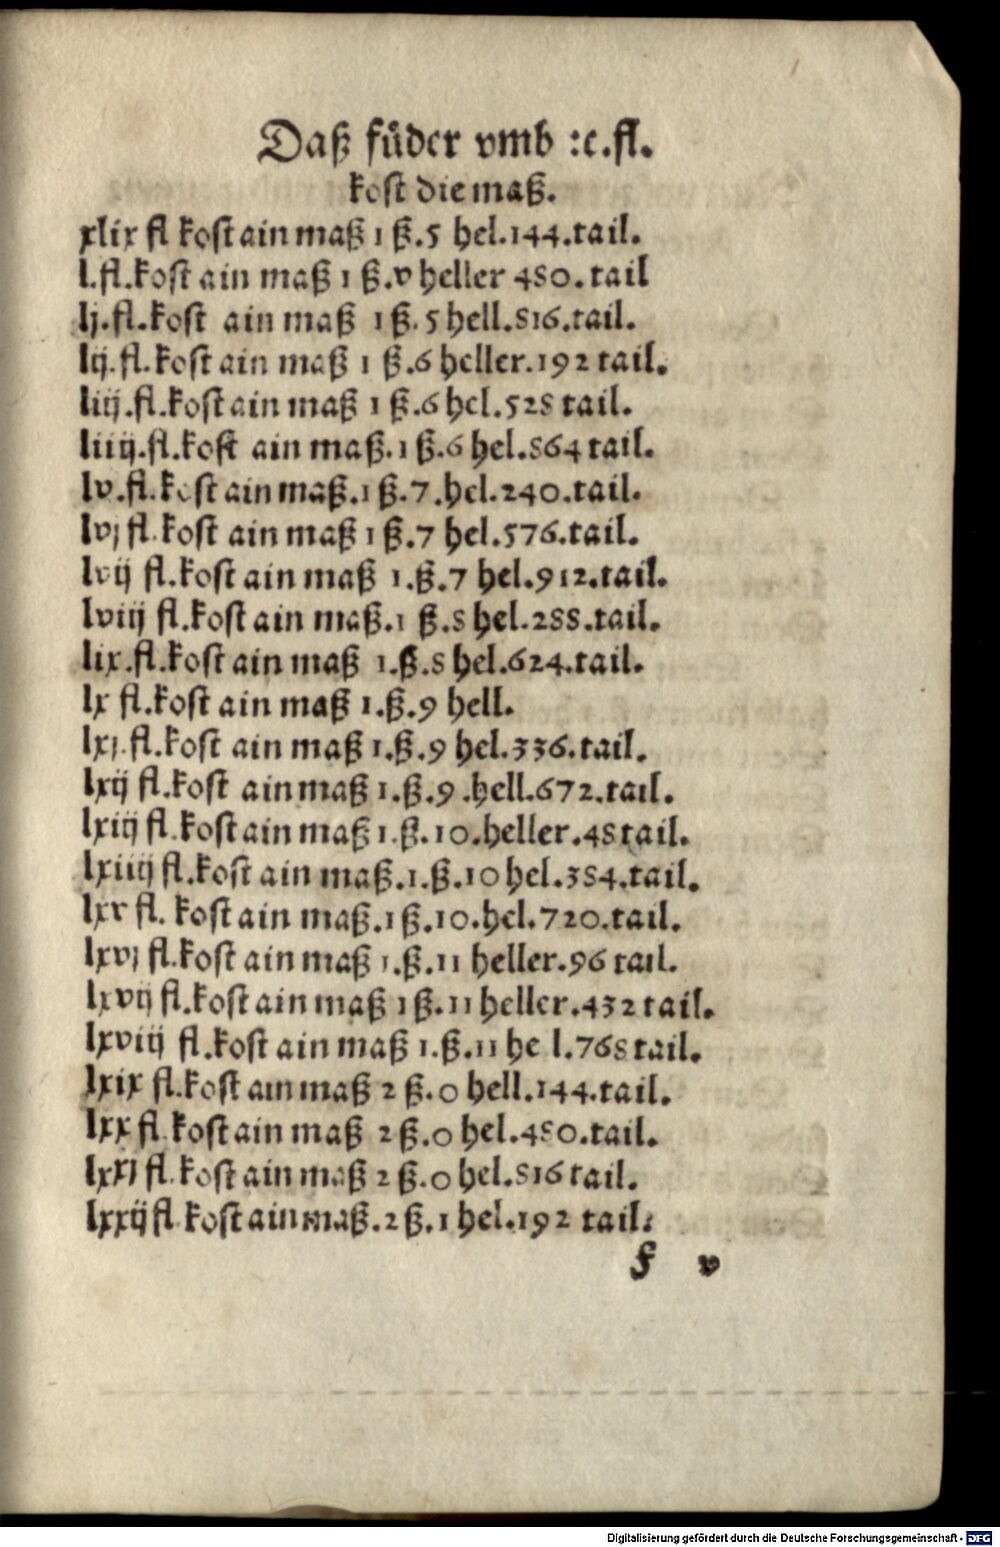 Daß fuͤder vmb ⁊c.fl.
kost die maß.
xlix fl kost ain maß 1 ß.5 hel.144.tail.
l.fl.kost ain maß 1 ß.v heller 480.tail
lj.fl.kost ain maß 1 ß.5 hell.816.tail.
lij.fl.kost ain maß 1 ß.6 heller.192 tail.
liij.fl.kost ain maß 1 ß.6 hel.528 tail.
liiij.fl.kost ain maß.1 ß.6 hel.864 tail.
lv.fl.kost ain maß.1 ß.7.hel.240.tail.
lvj fl.kost ain maß 1 ß.7 hel.576.tail.
lvij fl.kost ain maß 1.ß.7 hel.912.tail.
lviij fl.kost ain maß.1 ß.8 hel.288.tail.
lix.fl.kost ain maß 1.ß.8 hel.624.tail.
lx fl.kost ain maß 1.ß.9 hell.
lxj.fl.kost ain maß 1.ß.9 hel.336.tail.
lxij fl.kost ain maß 1.ß.9 .hell.672.tail.
lxiij fl.kost ain maß 1.ß.10.heller.48 tail.
lxiiij fl.kost ain maß.1.ß.10 hel.384.tail.
lxv fl. kost ain maß.1 ß.10.hel.720.tail.
lxvj fl.kost ain maß 1.ß.11 heller.96 tail.
lxvij fl.kost ain maß 1 ß.11 heller.432 tail.
lxviij fl.kost ain maß 1.ß.11 he l.768 tail.
lxix fl.kost ain maß 2 ß.0 hell.144.tail.
lxx fl.kost ain maß 2 ß.0 hel.480.tail.
lxxj fl.kost ain maß 2 ß.0 hel.816 tail.
lxxij fl.kost ain maß.2 ß.1 hel.192 tail.
f v
Digitalisierung gefördert durch die Deutsche Forschungsgemeinschaft - DFG